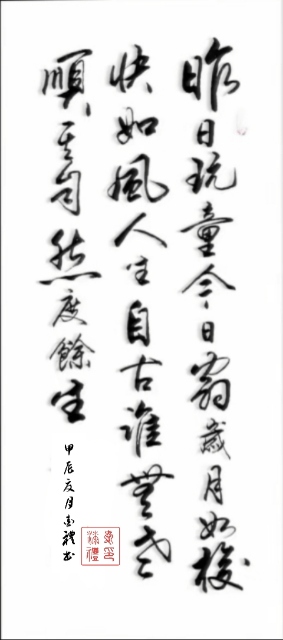 昨日玩童今日翁歲月如梭
快如風人生自古誰無老
順其自然度餘生
甲辰夏月書禮書